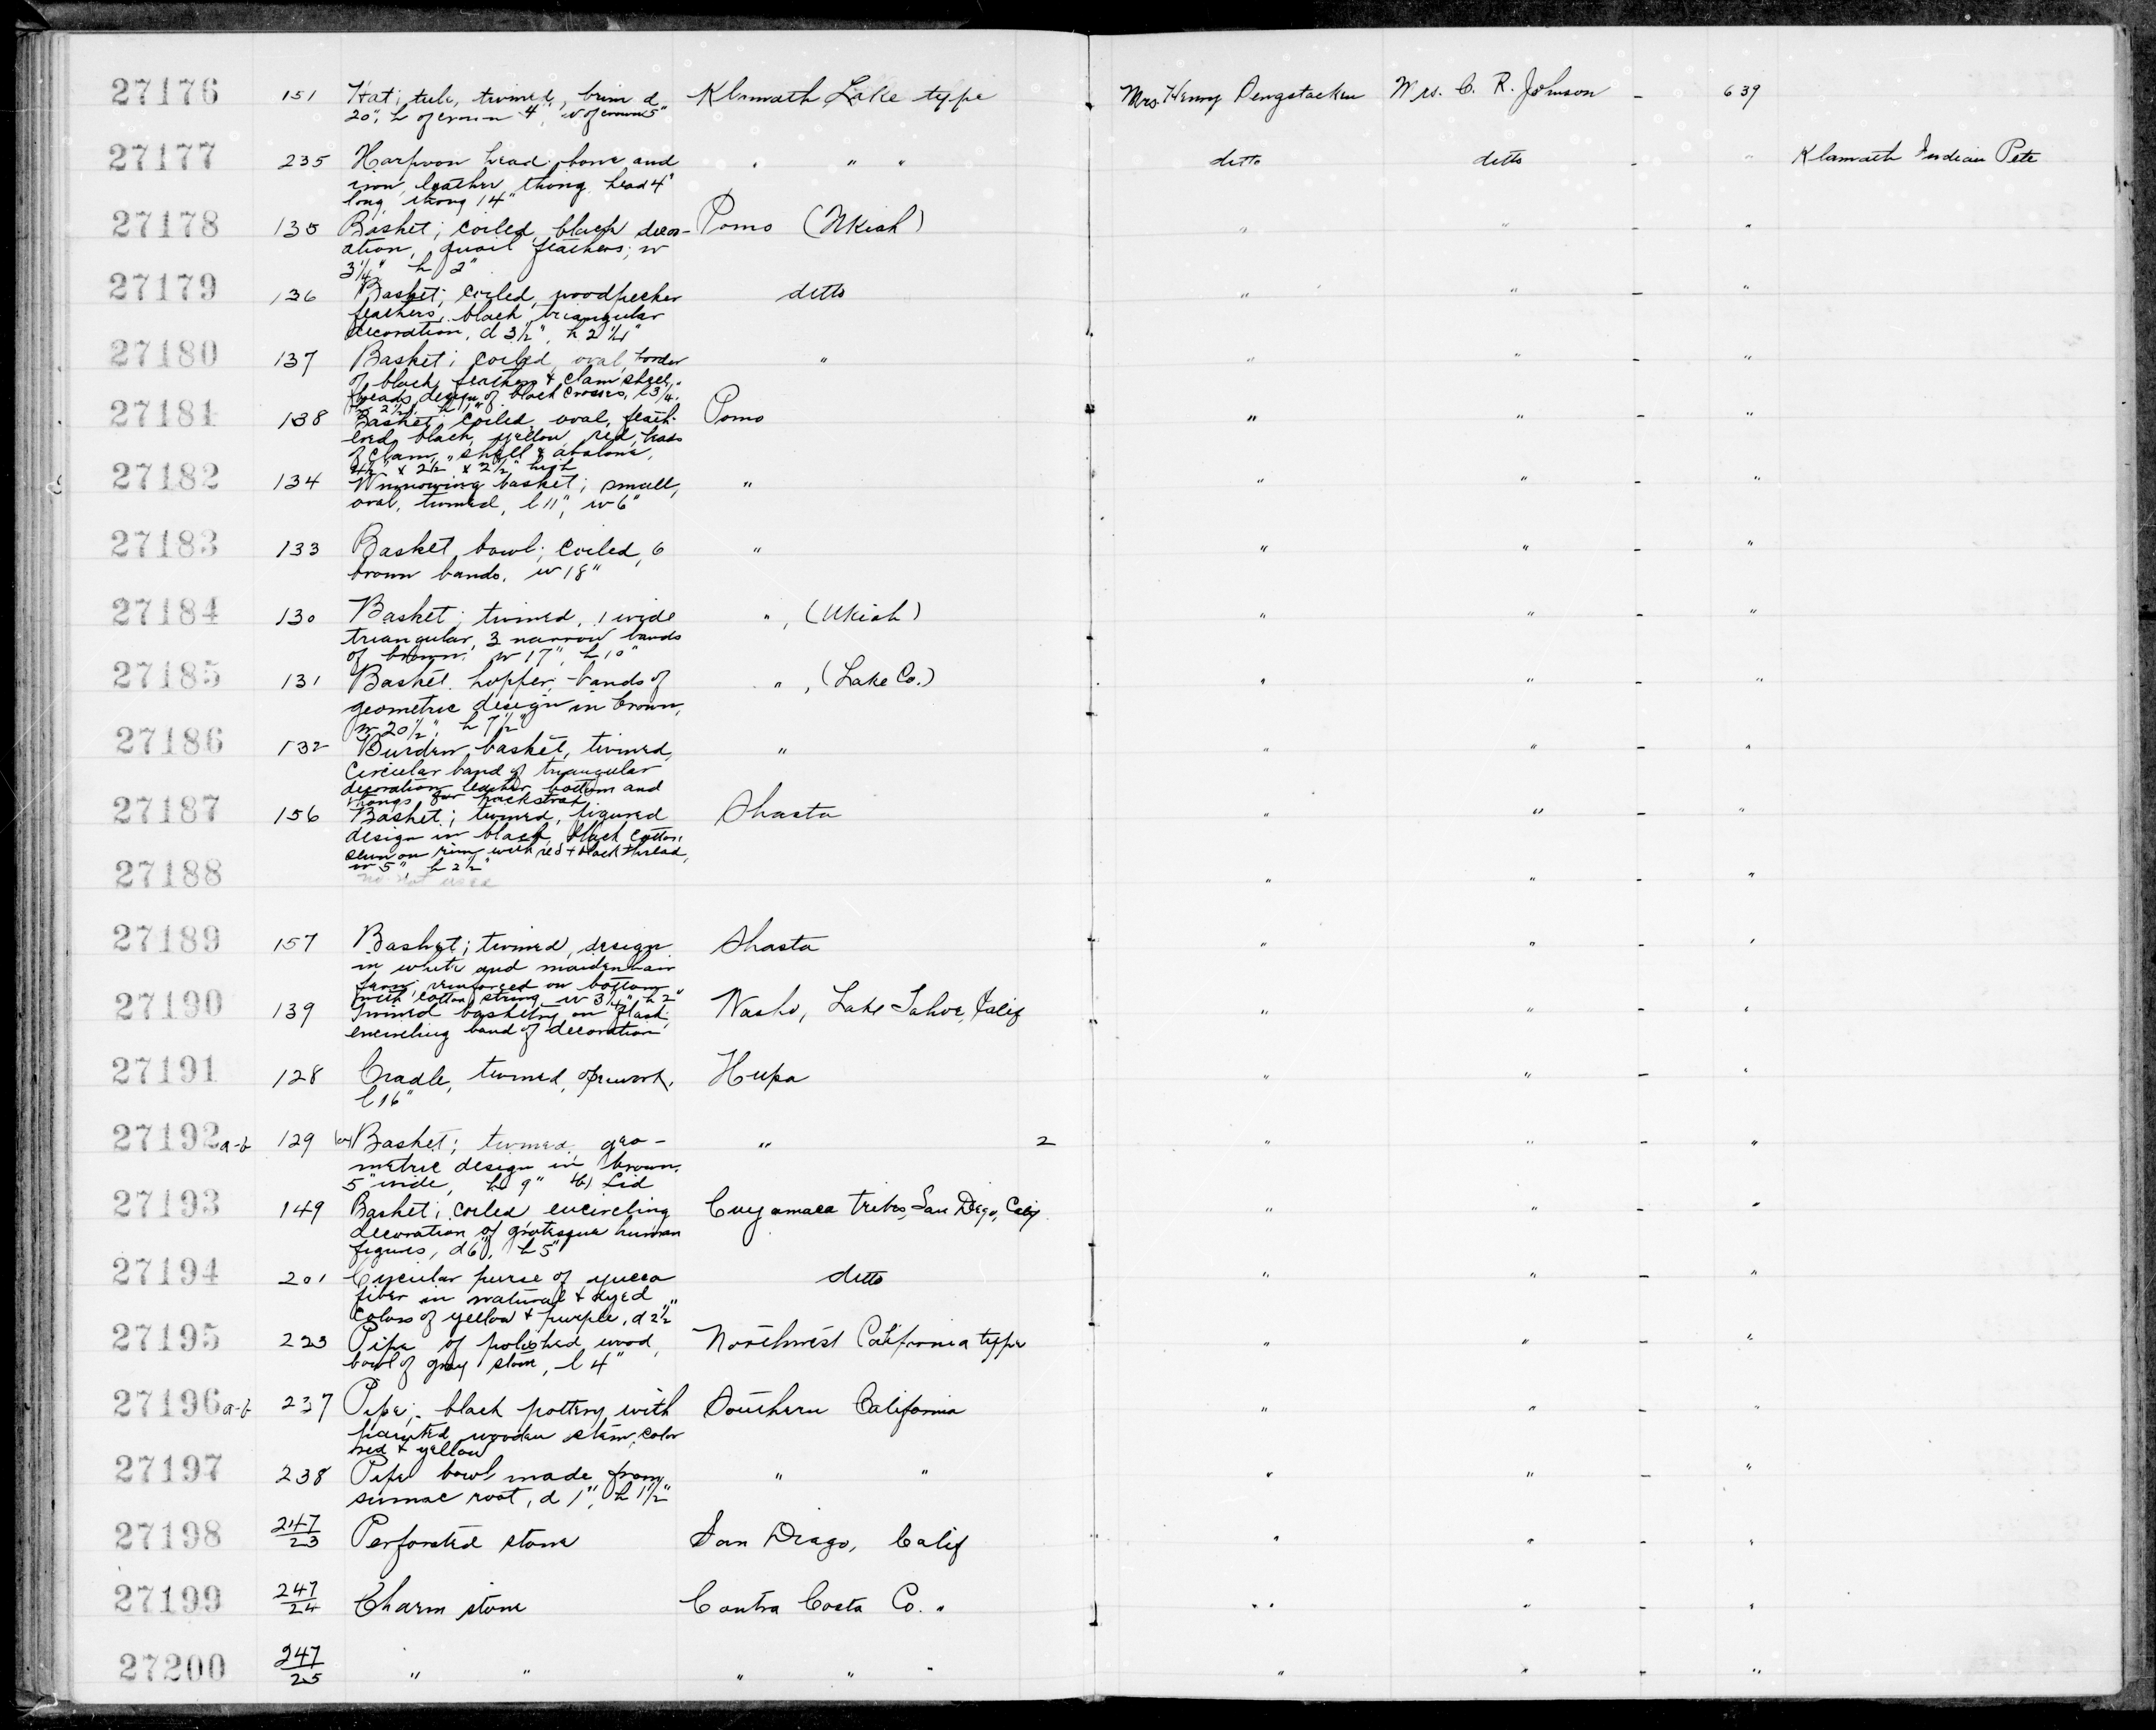 27176 151 Hat; tule, twined, brim d Klamath Lake type Mrs. Henry Dengstacken Mrs. C. R. Johnson - 639
20", h of crown 4", w of crown 5"
27177 235 Harpoon head; bone and " " " ditto ditto - " Klamath Indian Pete
iron, leather thong, head 4"
long, thong 14"
27178 135 Basket; coiled, black decor- Pomo (Ukiah) " " "
ation, quail feathers; w
3 1/4", h 2"
27179 136 Basket; coiled, woodpecker ditto " " - "
feathers, black triangular
decoration, d 3 1/2", h 2 1/4"
27180 137 Basket; coiled, oval, border " " " - "
of black feathers & clam shell
beads, design of black crosses, l 3 1/4",
w 2 1/2", h 1"
27181 138 Basket; coiled, oval, feath- Pomo " " - "
ered, black, yellow, red, beads
of clam shell & abalone,
4 1/2" x 2 1/2 x 2 1/2" high
27182 134 Winnowing basket; small, " " " - "
oval, twined, l 11", w 6"
27183 133 Basket bowl; coiled, 6 " " " - "
brown bands. w 18"
27184 130 Basket; twined, 1 wide ", (Ukiah) " " - "
triangular, 3 narrow bands
of brown. w 17", h 10"
27185 131 Basket hopper, bands of ", (Lake Co.) " " - "
geometric design in brown,
w 20 1/2", h 7 1/2"
27186 132 Burden basket, twined, " " " - "
circular band of triangular
decoration, leather bottom and
thongs for packstrap
27187 156 Basket; twined, figured Shasta " " - "
design in black, black cotton
sewn on rim with red & black thread,
w 5", h 2 1/2"
27188 no. not used " " - "
27189 157 Basket; twined, design Shasta " " - "
in white and maidenhair
fern; reinforced on bottom
with cotton string, w 3 1/4" h 2"
27190 139 Twined basketry on flask, Washo, Lake Tahoe, Calif " " - "
encircling band of decoration
27191 128 Cradle, twined, openwork, Hupa " " - "
l 16"
27192 a-b 129 (a) Basket; twined, geo- " 2 " " - "
metric design in brown.
5" wide, h 9" (b) Lid
27193 149 Basket; coiled encircling Cuyamaca tribes, San Diego, Calif " " - "
decoration of grotesque human
figures, d 6", h 5"
27194 201 Circular purse of yucca ditto " " - "
fiber in natural & dyed
colors of yellow & purple, d 2 1/2"
27195 223 Pipe of polished wood, Northwest California type " " - "
bowl of gray stone, l 4"
27196 a-b 237 Pipe; black pottery with Southern California " " - "
painted wooden stem, color
red & yellow
27197 238 Pipe bowl made from " " " " - "
sumac root, d 1", h 1 1/2"
27198 247/23 Perforated stone San Diego, Calif " " - "
27199 247/24 Charm stone Contra Costa Co. " " " - "
27200 247/25 " " " " " " " - "